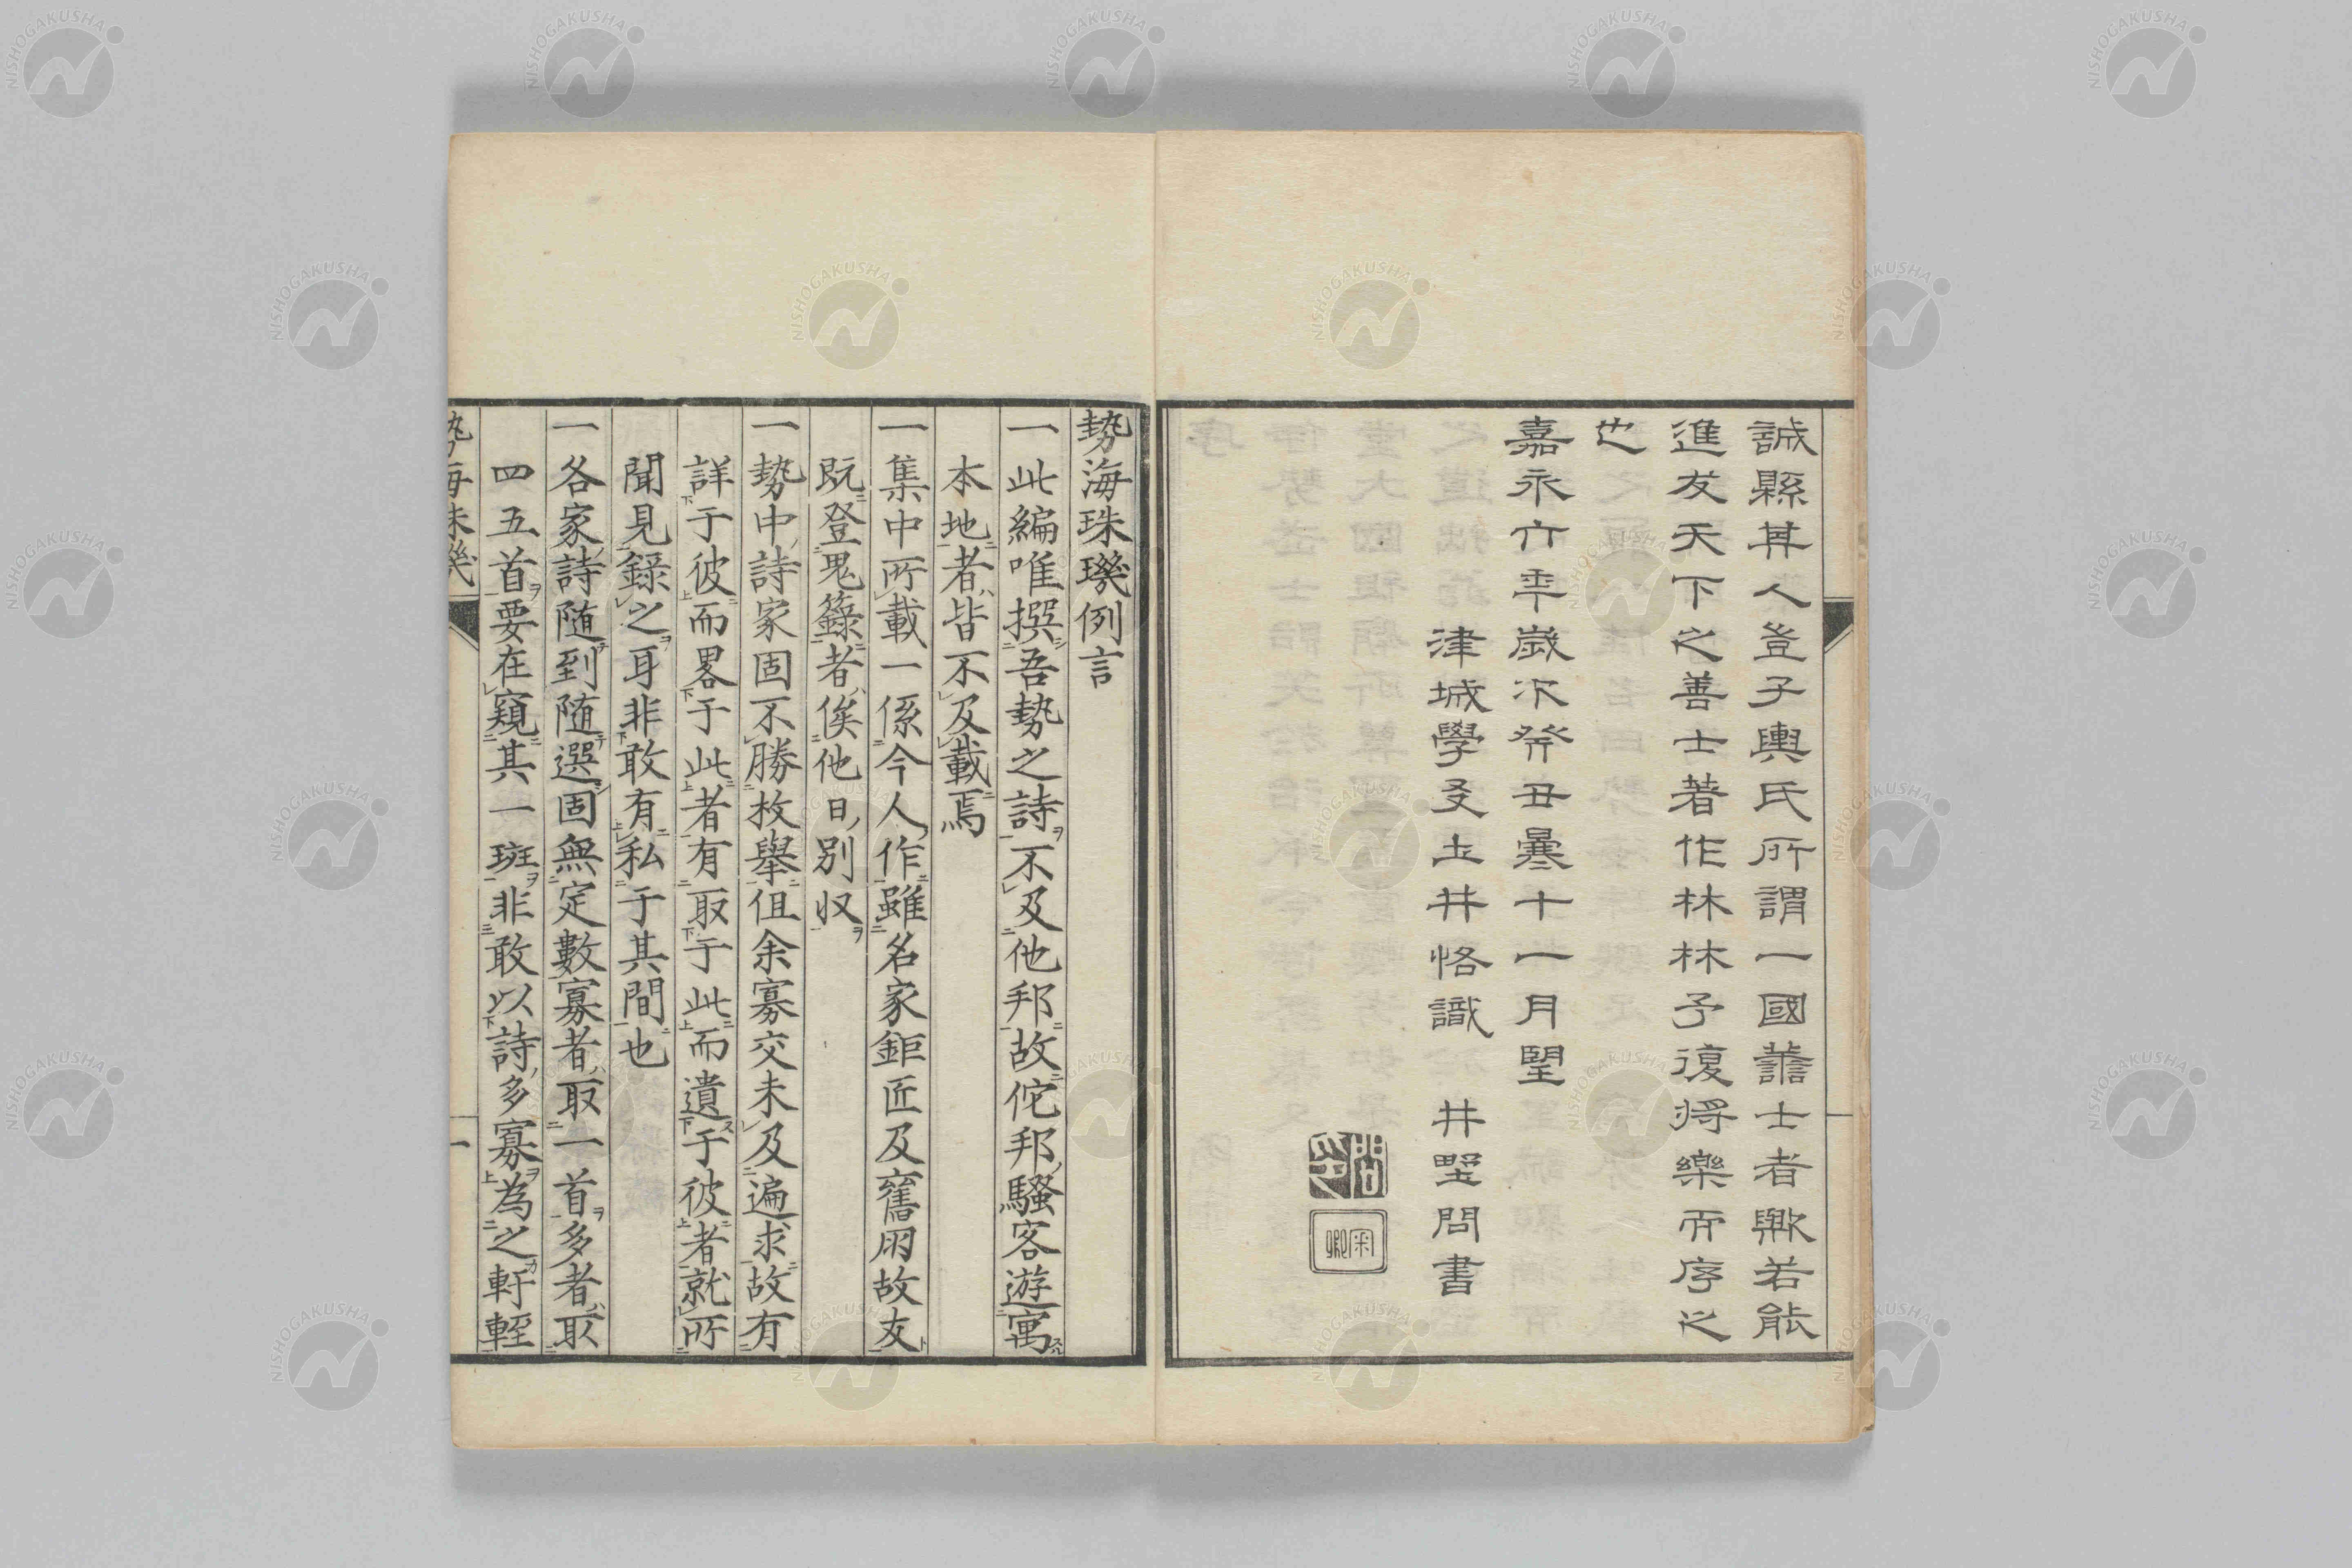 誠縣其人豈子輿氏所謂一國譱士者歟若能
進友天下之善士著作林林予復将樂而序之
也
嘉永六年歲次癸丑㬥十一月望
津城學叟土井恪識 井埜問書
勢海珠璣例言
一此編唯撰吾勢之詩不及他邦故佗邦騷客遊寓
本地者皆不及載焉
一集中所載一係今人作雖名家鉅匠及舊朋故友
既登鬼籙者俟他日別収
一勢中詩家固不勝枚舉但余寡交未及遍求故有
詳于彼而畧于此者有取于此而遺于彼者就所
聞見錄之耳非敢有私于其間也
一各家詩随到随選固無定數寡者取一首多者取
四五首要在窺其一斑非敢以詩多寡為之軒輊
勢海珠璣
一
NISHOGAKUSHA